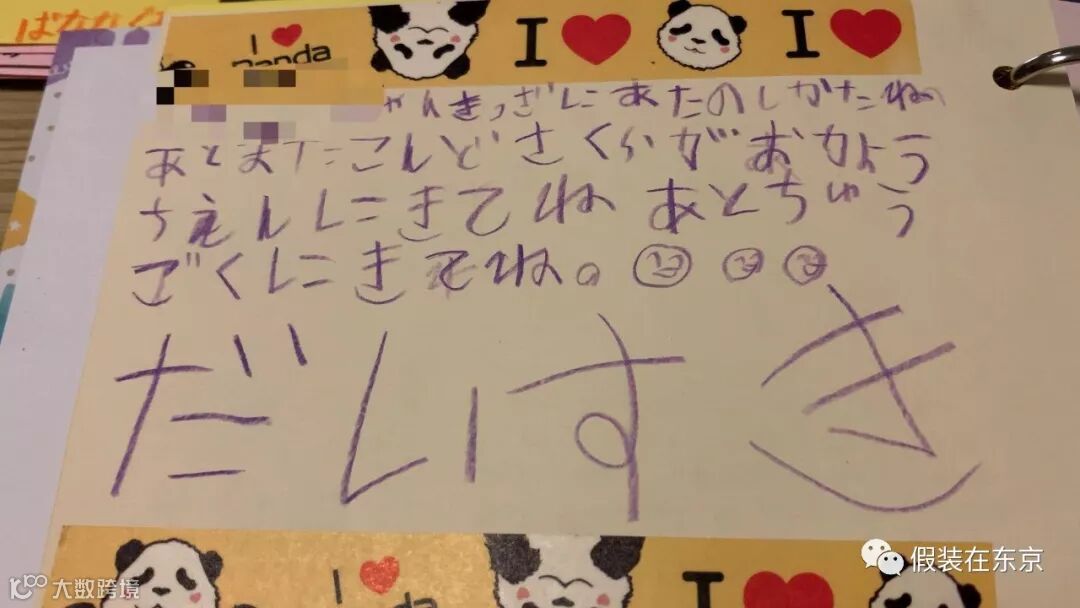 ばななく
I ❤ panda I ❤ I ❤
ゃんきっざしにあたのしかたね
あとまたこんどさくらがおかよう
ちえんしにきてね あとちゅう
ごくしにきてね。
だいすき
I ❤ panda I ❤
大数跨境
假装在东京